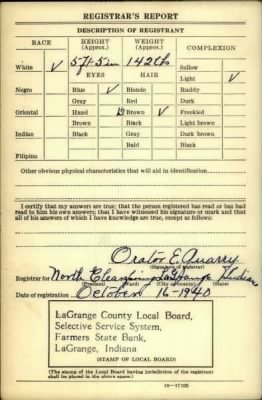 REGISTRAR'S REPORT
DESCRIPTION OF REGISTRANT
RACE HEIGHT (Approx.) WEIGHT (Approx.) COMPLEXION
White ✓ 5 ft 5 in 142 lbs Sallow
EYES HAIR Light ✓
Negro Blue ✓ Blonde Ruddy
Gray Red Dark
Oriental Hazel Brown ✓ Freckled
Brown Black Light brown
Indian Black Gray Dark brown
Bald Black
Filipino
Other obvious physical characteristics that will aid in identification
I certify that my answers are true; that the person registered has read or has had read to him his own answers; that I have witnessed his signature or mark and that all of his answers of which I have knowledge are true, except as follows:
Orator E. Quarry
(Signature of registrar)
Registrar for North LaGrange
(Precinct) (Ward) (City or county) (State)
Date of registration October 16-1940
LaGrange County Local Board,
Selective Service System,
Farmers State Bank,
LaGrange, Indiana
(STAMP OF LOCAL BOARD)
(The stamp of the Local Board having jurisdiction of the registrant
shall be placed in the above space.)